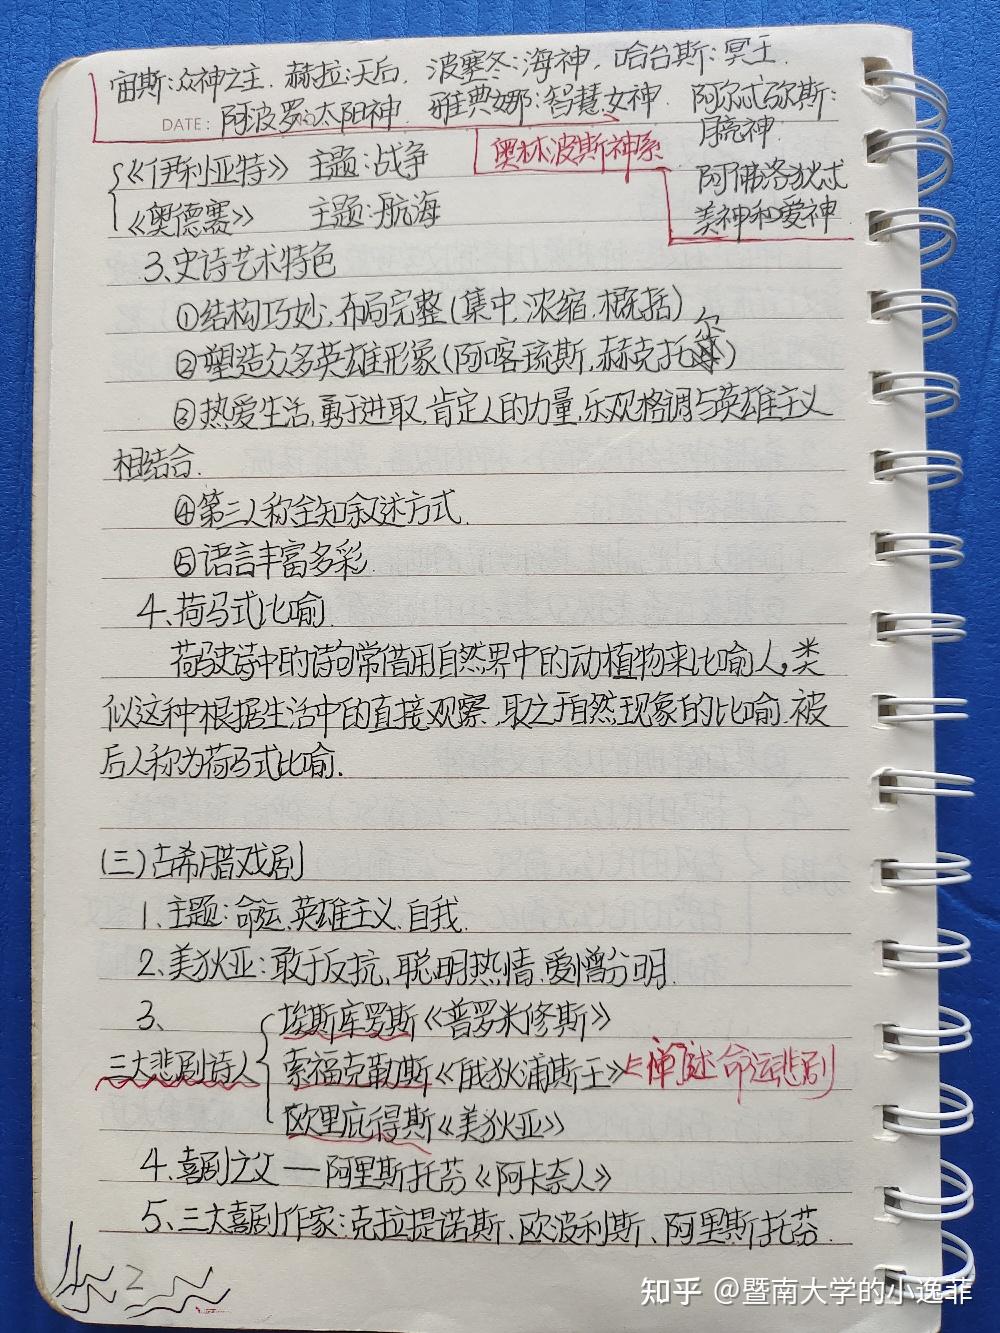 宙斯:众神之主. 赫拉:天后. 波塞冬:海神. 哈台斯:冥王
DATE: 阿波罗:太阳神. 雅典娜:智慧女神. 阿尔忒弥斯:
月亮神.
奥林波斯神系
《伊利亚特》 主题:战争
阿佛洛狄忒
《奥德赛》 主题:航海
美神和爱神
3、史诗艺术特色
①结构巧妙,布局完整(集中.浓缩.概括)
②塑造众多英雄形象(阿喀琉斯,赫克托尔)
③热爱生活,勇于进取,肯定人的力量,乐观格调与英雄主义
相结合.
④第三人称全知叙述方式.
⑤语言丰富多彩.
4、荷马式比喻
荷马史诗中的诗句常借用自然界中的动植物来比喻人,类
似这种根据生活中的直接观察.取之于自然现象的比喻.被
后人称为荷马式比喻.
(三)古希腊戏剧
1.主题:命运.英雄主义.自我.
2、美狄亚:敢于反抗,聪明热情.爱憎分明.
3、
埃斯库罗斯《普罗米修斯》
三大悲剧诗人 索福克勒斯《俄狄浦斯王》 命运悲剧
欧里庇得斯《美狄亚》
4.喜剧之父——阿里斯托芬《阿卡奈人》
5、三大喜剧作家:克拉提诺斯、欧波利斯、阿里斯托芬.
2
知乎 @暨南大学的小逸菲